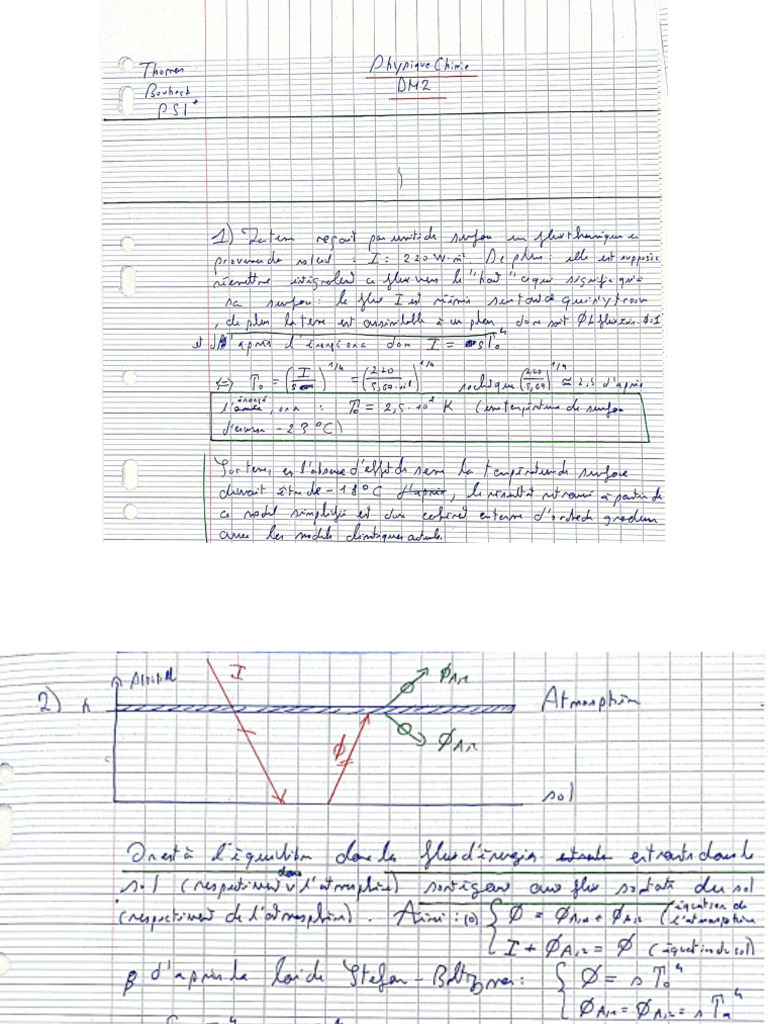 Thomas
Physique Chimie
DM2
PSI*
1) La terre reçoit par unité de surface un flux thermique en
provenance du soleil : I = 220 W.m². De plus : elle est supposée
réemettre intégralement ce flux vers le "haut" ce qui signifie qu'à
sa surface : le flux I est le même
, de plus la terre est assimilable à un plan donc
et d'après l'énoncé on a donc I = sT₀⁴
⇔ T₀ = (I/s)^1/4 = (220/5,67.10⁻⁸)^1/4 sachant que (220/5,67)^1/4 ≃ 2,5 d'après
l'énoncé, on a : T₀ = 2,5.10² K (une température de surface
d'environ -23°C)
Sur terre, en l'absence d'effet de serre la température de surface
devrait être de -18°C d'après, le résultat retrouvé à partir de
ce modèle simplifié est donc cohérent en terme d'ordre de grandeur
avec les modèles climatiques actuels.
2) h Altitude I ϕA,1 Atmosphère
ϕ ϕA,2
sol
On est à l'équilibre donc les flux d'énergies entrants dans le
sol (respectivement dans l'atmosphère) sont égaux aux flux sortants du sol
(respectivement de l'atmosphère). Ainsi : (0) { ϕ = ϕA,1 + ϕA,2 (équation de l'atmosphère
I + ϕA,2 = ϕ (équation du sol)
d'après la loi de Stefan-Boltzmann : { ϕ = sT₀⁴
ϕA,1 = ϕA,2 = sTa⁴